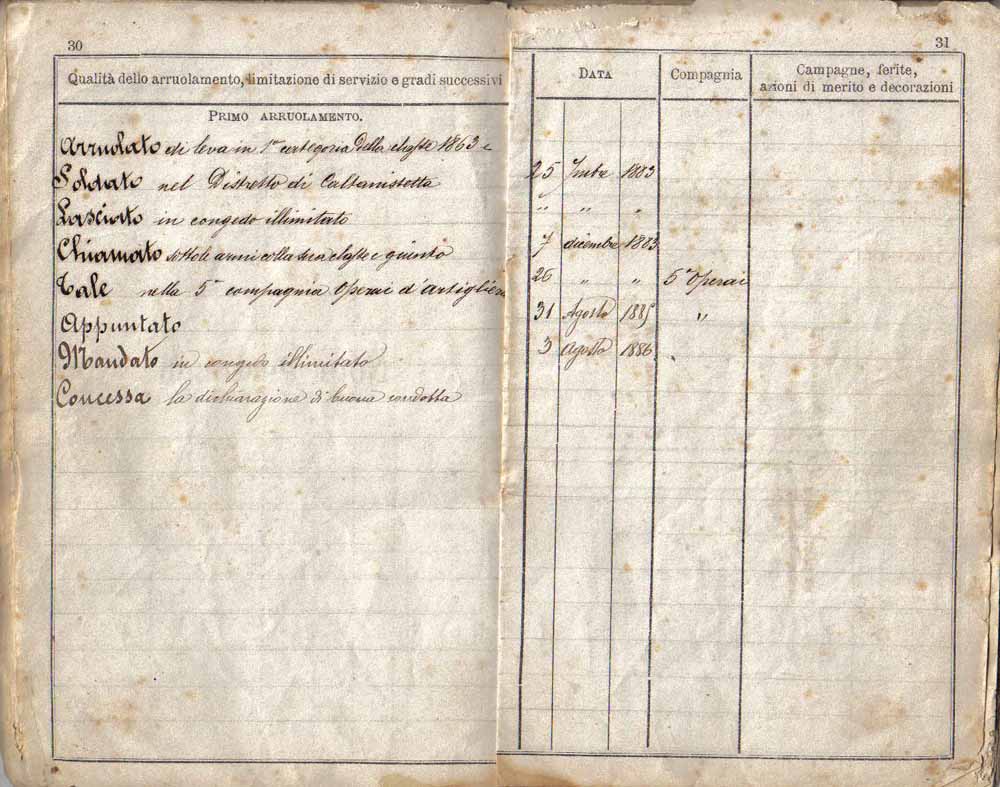 30
Qualità dello arruolamento, limitazione di servizio e gradi successivi
PRIMO ARRUOLAMENTO.
Arruolato di leva in 1ª categoria della classe 1863 e
Soldato nel Distretto di Caltanissetta
Lasciato in congedo illimitato
Chiamato sotto le armi colla sua classe e giunto
Tale nella 5ª compagnia Operai d'artiglieria
Appuntato
Mandato in congedo illimitato
Concessa la dichiarazione di buona condotta
31
DATA Compagnia Campagne, ferite,
azioni di merito e decorazioni
25 1883
" " "
7 dicembre 1883
26 " " 5ª Operai
31 Agosto 1885 "
3 Agosto 1886